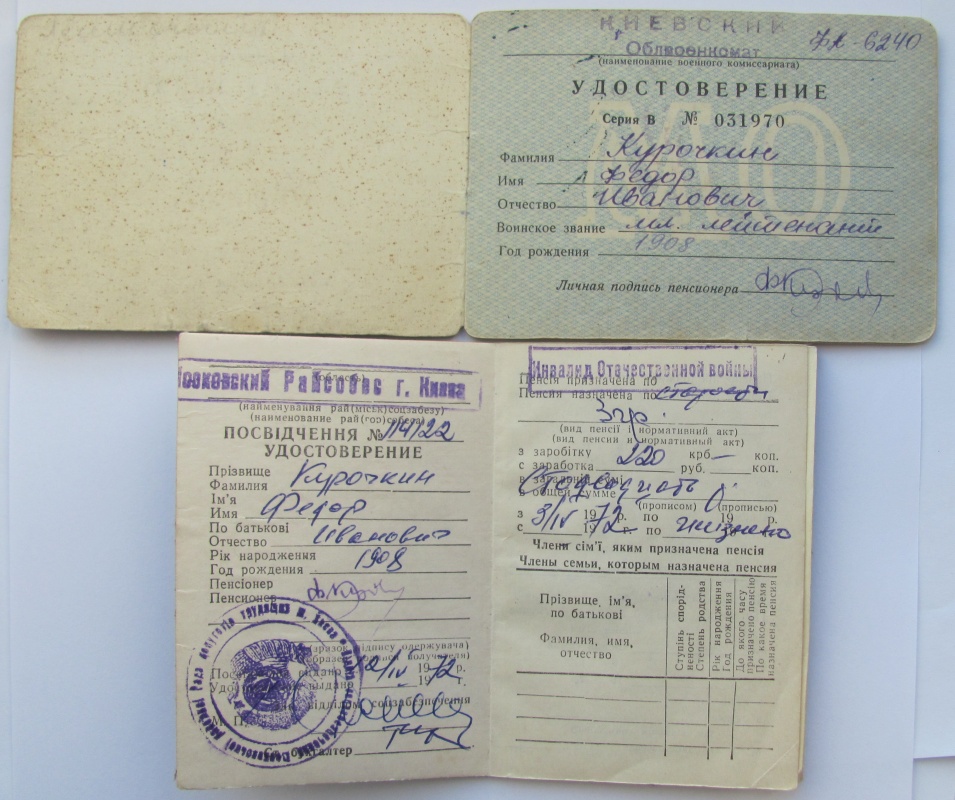 КИЕВСКИЙ
г
Облвоенкомат
ФК-6240
(наименование военного комиссариата)
УДОСТОВЕРЕНИЕ
Серия В № 031970
Фамилия Курочкин
Имя Федор
Отчество Иванович
Воинское звание мл. лейтенант
Год рождения 1908
Личная подпись пенсионера
Московский Райсобес г. Киева
(область)
(найменування рай(міськ)соцзабезу)
(наименование рай(гор)собеса)
ПОСВІДЧЕННЯ № 114122
УДОСТОВЕРЕНИЕ
Прізвище
Фамилия Курочкин
Ім'я
Имя Федор
По батькові
Отчество Иванович
Рік народження
Год рождения 1908
Пенсіонер
Пенсионер
(зразок підпису одержувача)
12/IV 1972 р.
відділом соцзабезпечення
М. П.
Ст. бухгалтер
Инвалид Отечественной войны
Пенсія призначена по
Пенсия назначена по старости
3 гр.
(вид пенсії і нормативний акт)
(вид пенсии и нормативный акт)
з заробітку 220 крб— коп.
с заработка руб. коп.
в загальній сумі
в общей сумме
(прописом) (прописью)
з 9/IV 1972 р. по 19 р.
с 19 г. по
Члени сім'ї, яким призначена пенсія
Члены семьи, которым назначена пенсия
Прізвище, ім'я,
по батькові
Фамилия, имя,
отчество
Ступінь спорід-
неності
Степень родства
Рік народження
Год рождения
До якого часу
призначено пенсію
По какое время
назначена пенсия